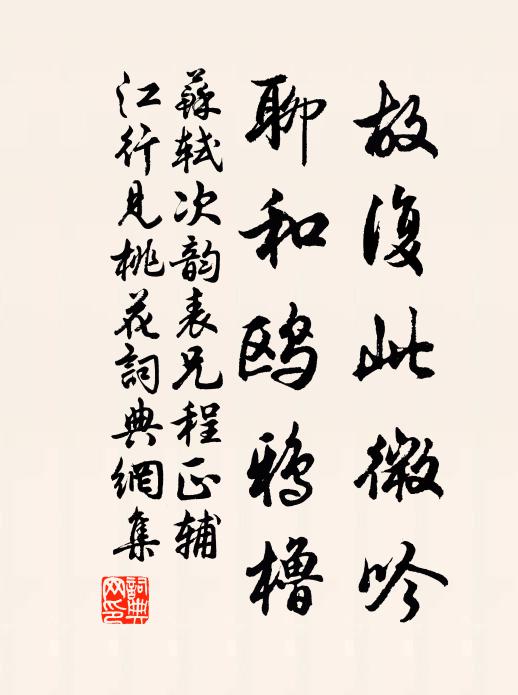 故復此微吟
聊和鸥鴉櫓
蘇軾次韵表兄程正輔
江行見桃花詞典網集